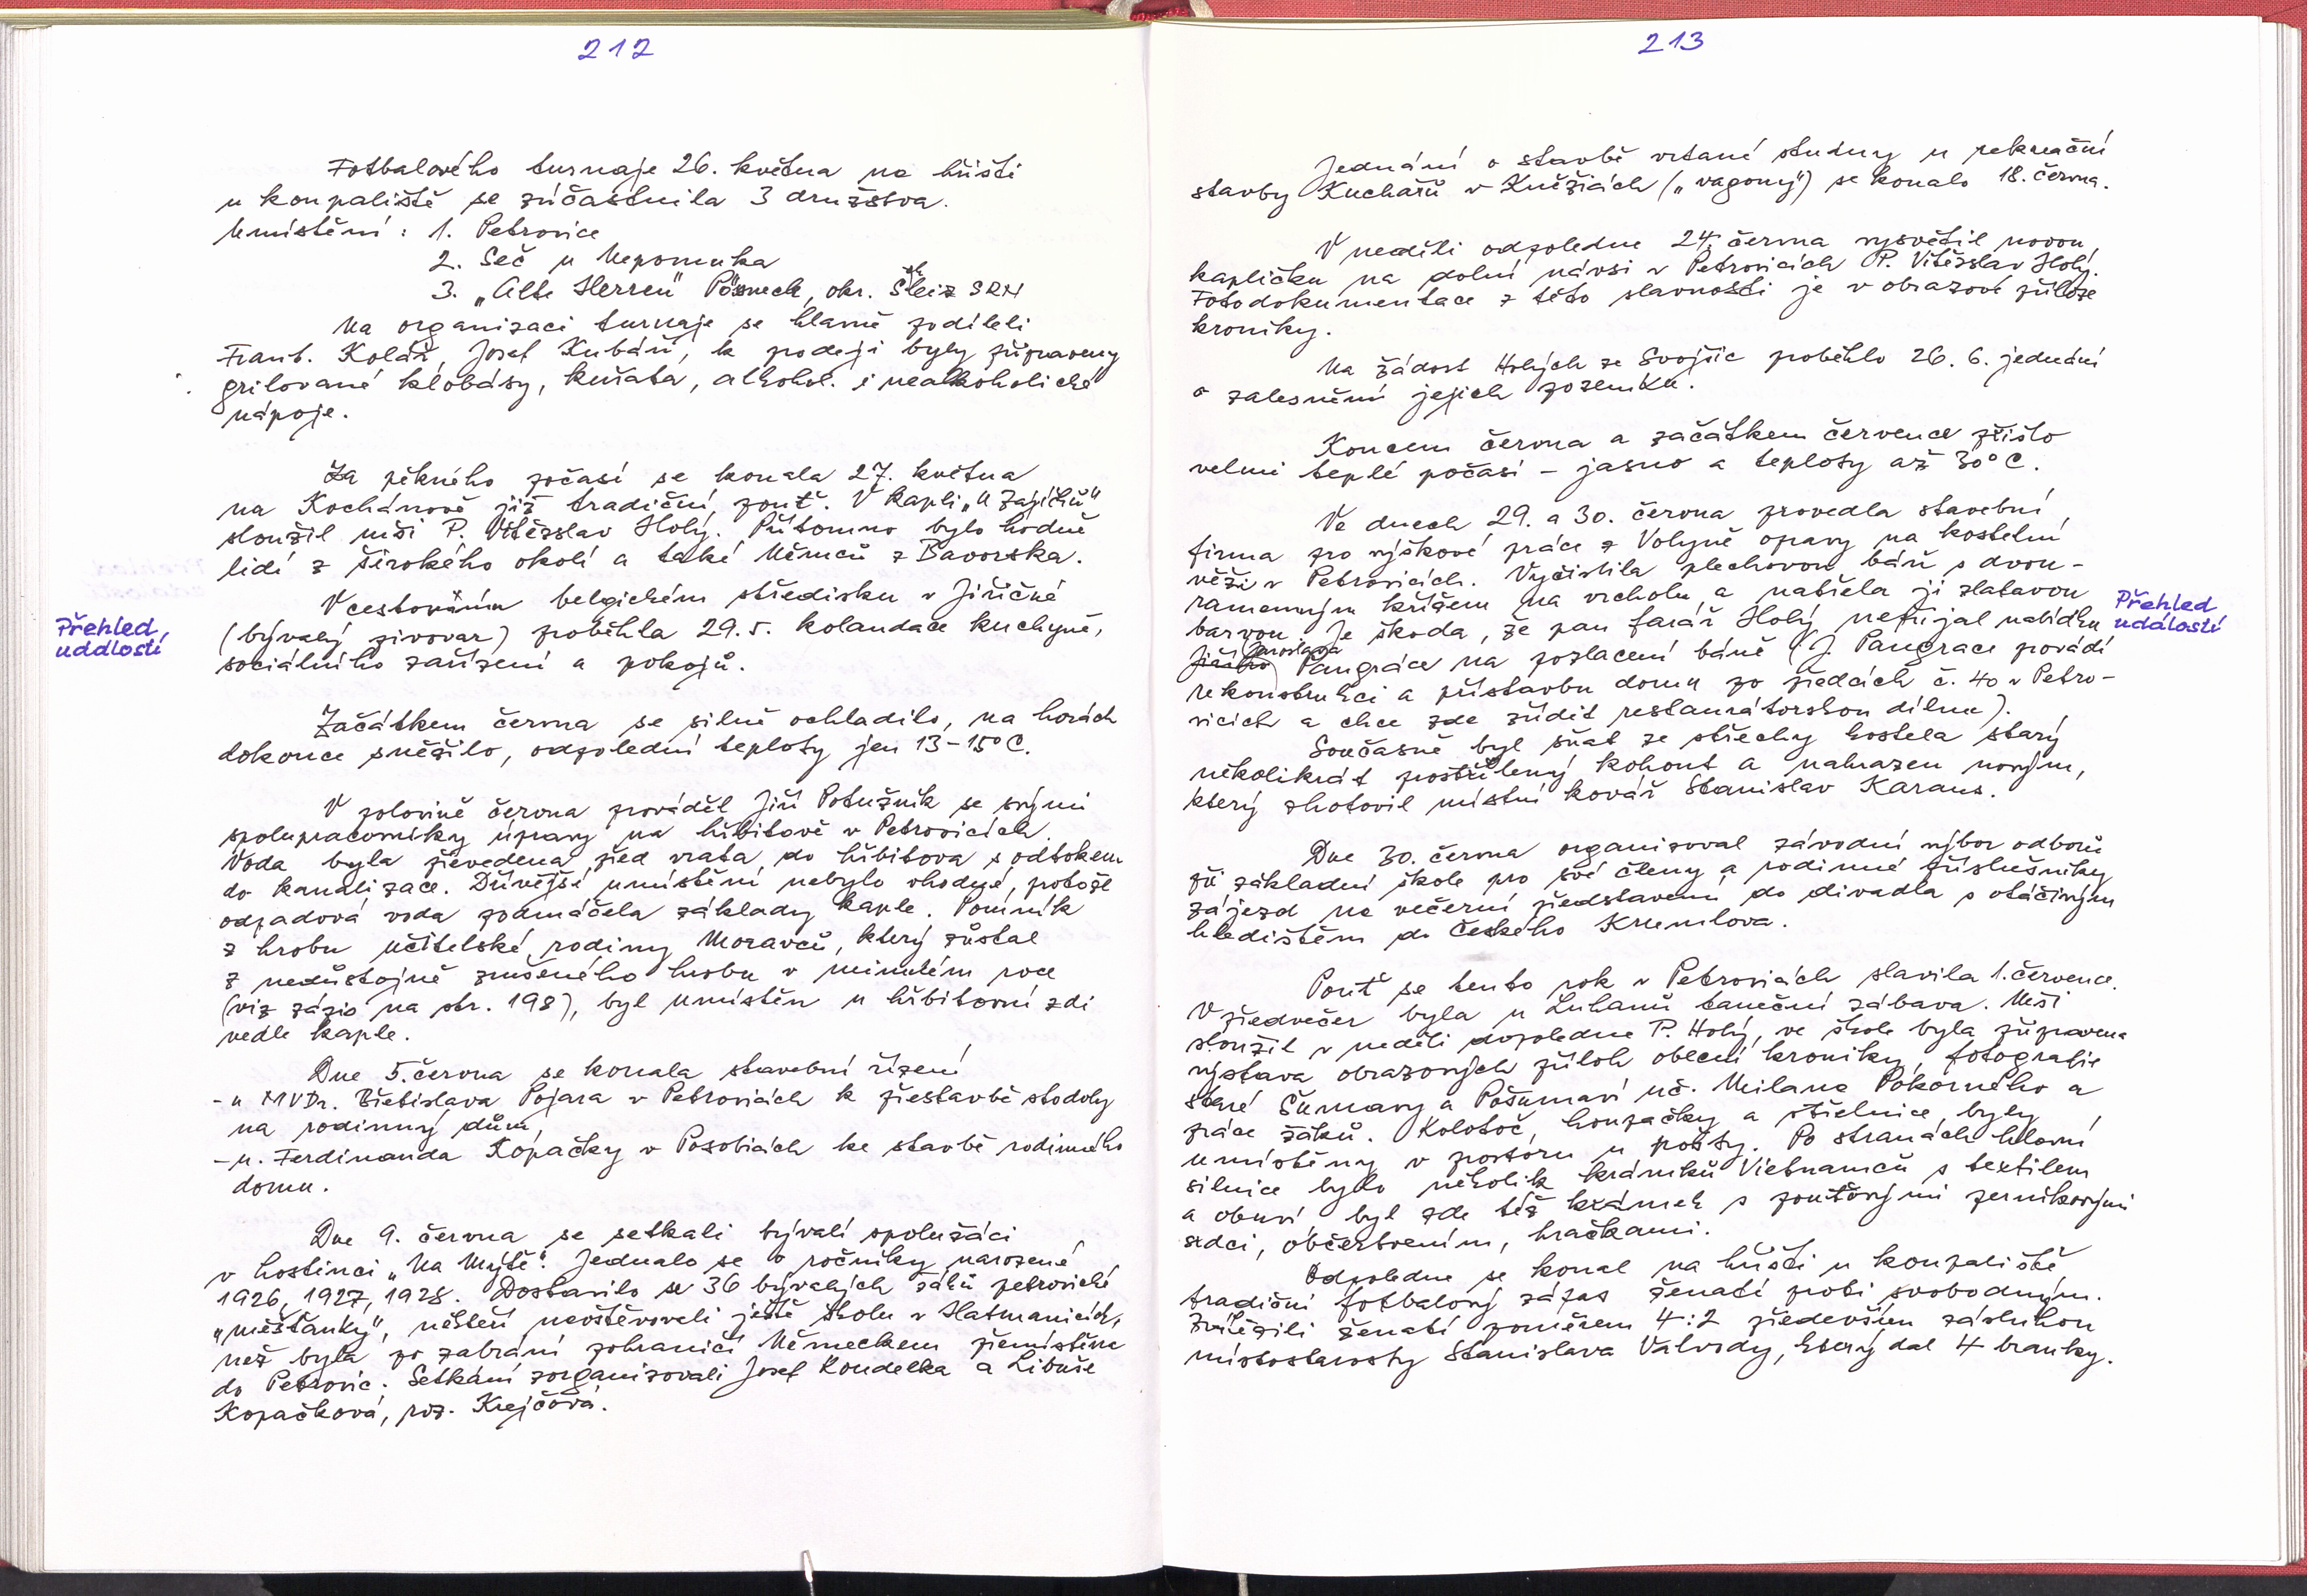 212
Fotbalového turnaje 26. května na hřišti
u koupaliště se zúčastnila 3 družstva.
Umístění: 1. Petrovice
2. Seč u Nepomuka
3. „Alte Herren" Pösneck, okr. Schleiz SRN
Na organizaci turnaje se hlavně podíleli
Frant. Kolář, Josef Kubáň, k prodeji byly připraveny
grilované klobásy, kuřata, alkohol. i nealkoholické
nápoje.
Za pěkného počasí se konala 27. května
na Kochánově již tradiční pouť. V kapli „U Zajíčků"
sloužil mši P. Vítězslav Holý. Přítomno bylo hodně
lidí z širokého okolí a také Němců z Bavorska.
V cestovním belgickém středisku v Jiřičné
(bývalý pivovar) proběhla 29.5. kolaudace kuchyně,
sociálního zařízení a pokojů.
Přehled
událostí
Začátkem června se silně ochladilo, na horách
dokonce sněžilo, odpolední teploty jen 13-15°C.
V polovině června prováděl Jiří Potužník se svými
spolupracovníky úpravy na hřbitově v Petrovicích.
Voda byla převedena před vrata do hřbitova s odtokem
do kanalizace. Dřívější umístění nebylo vhodné, protože
odpadová voda podmáčela základy kaple. Pomník
z hrobu učitelské rodiny Moravců, který zůstal
z nedůstojně zrušeného hrobu v minulém roce
(viz zápis na str. 198), byl umístěn u hřbitovní zdi
vedle kaple.
Dne 5. června se konala stavební řízení
- u MVDr. Břetislava Pojara v Petrovicích k přestavbě stodoly
na rodinný dům,
- u Ferdinanda Kopačky v Posobicích ke stavbě rodinného
domu.
Dne 9. června se setkali bývalí spolužáci
v hostinci „Na Mýtě". Jednalo se o ročníky narozené
1926, 1927, 1928. Dostavilo se 36 bývalých žáků petrovické
„měšťanky", někteří navštěvovali ještě školu v Hartmanicích,
než byla po zabrání pohraničí Německem přemístěna
do Petrovic. Setkání zorganizovali Josef Koudelka a Libuše
Kopačková, roz. Krejčová.
213
Jednání o stavbě vrtané studny u rekreační
stavby Kuchařů v Kněžicích („vagony") se konalo 18. června.
V neděli odpoledne 24. června vysvětil novou
kapličku na dolní návsi v Petrovicích P. Vítězslav Holý.
Fotodokumentace z této slavnosti je v obrazové příloze
kroniky.
Na žádost Holých ze Svojšic proběhlo 26. 6. jednání
o zalesnění jejich pozemku.
Koncem června a začátkem července přišlo
velmi teplé počasí - jasno a teploty až 30°C.
Ve dnech 29. a 30. června provedla stavební
firma pro výškové práce z Volyně opravy na kostelní
věži v Petrovicích. Vyčistila plechovou báň s dvou-
ramenným křížem na vrcholu a natřela ji zlatavou
barvou. Je škoda, že pan farář Holý nepřijal nabídku
Jiřího (Jaroslava) Pangráce na pozlacení báně (J. Pangrác provádí
rekonstrukci a přístavbu domu po předcích č. 40 v Petro-
vicích a chce zde zřídit restaurátorskou dílnu).
Přehled
událostí
Současně byl sňat ze střechy kostela starý
několikrát postřílený kohout a nahrazen novým,
který zhotovil místní kovář Stanislav Karaus.
Dne 30. června organizoval závodní výbor odborů
při základní škole pro své členy a rodinné příslušníky
zájezd na večerní představení do divadla s otáčivým
hledištěm do Českého Krumlova.
Pouť se tento rok v Petrovicích slavila 1. července.
V předvečer byla u Luhanů taneční zábava. Mši
sloužil v neděli dopoledne P. Holý, ve škole byla připravena
výstava obrazových příloh obecní kroniky, fotografie
staré Šumavy a Pošumaví uč. Milana Pokorného a
práce žáků. Kolotoč, houpačky a střelnice byly
umístěny v prostoru u pošty. Po stranách hlavní
silnice bylo několik krámků Vietnamců s textilem
a obuví, byl zde též krámek s pouťovými perníkovými
srdci, občerstvením, hračkami.
Odpoledne se konal na hřišti u koupaliště
tradiční fotbalový zápas ženatí proti svobodným.
Zvítězili ženatí poměrem 4:2 především zásluhou
místostarosty Stanislava Valvody, který dal 4 branky.